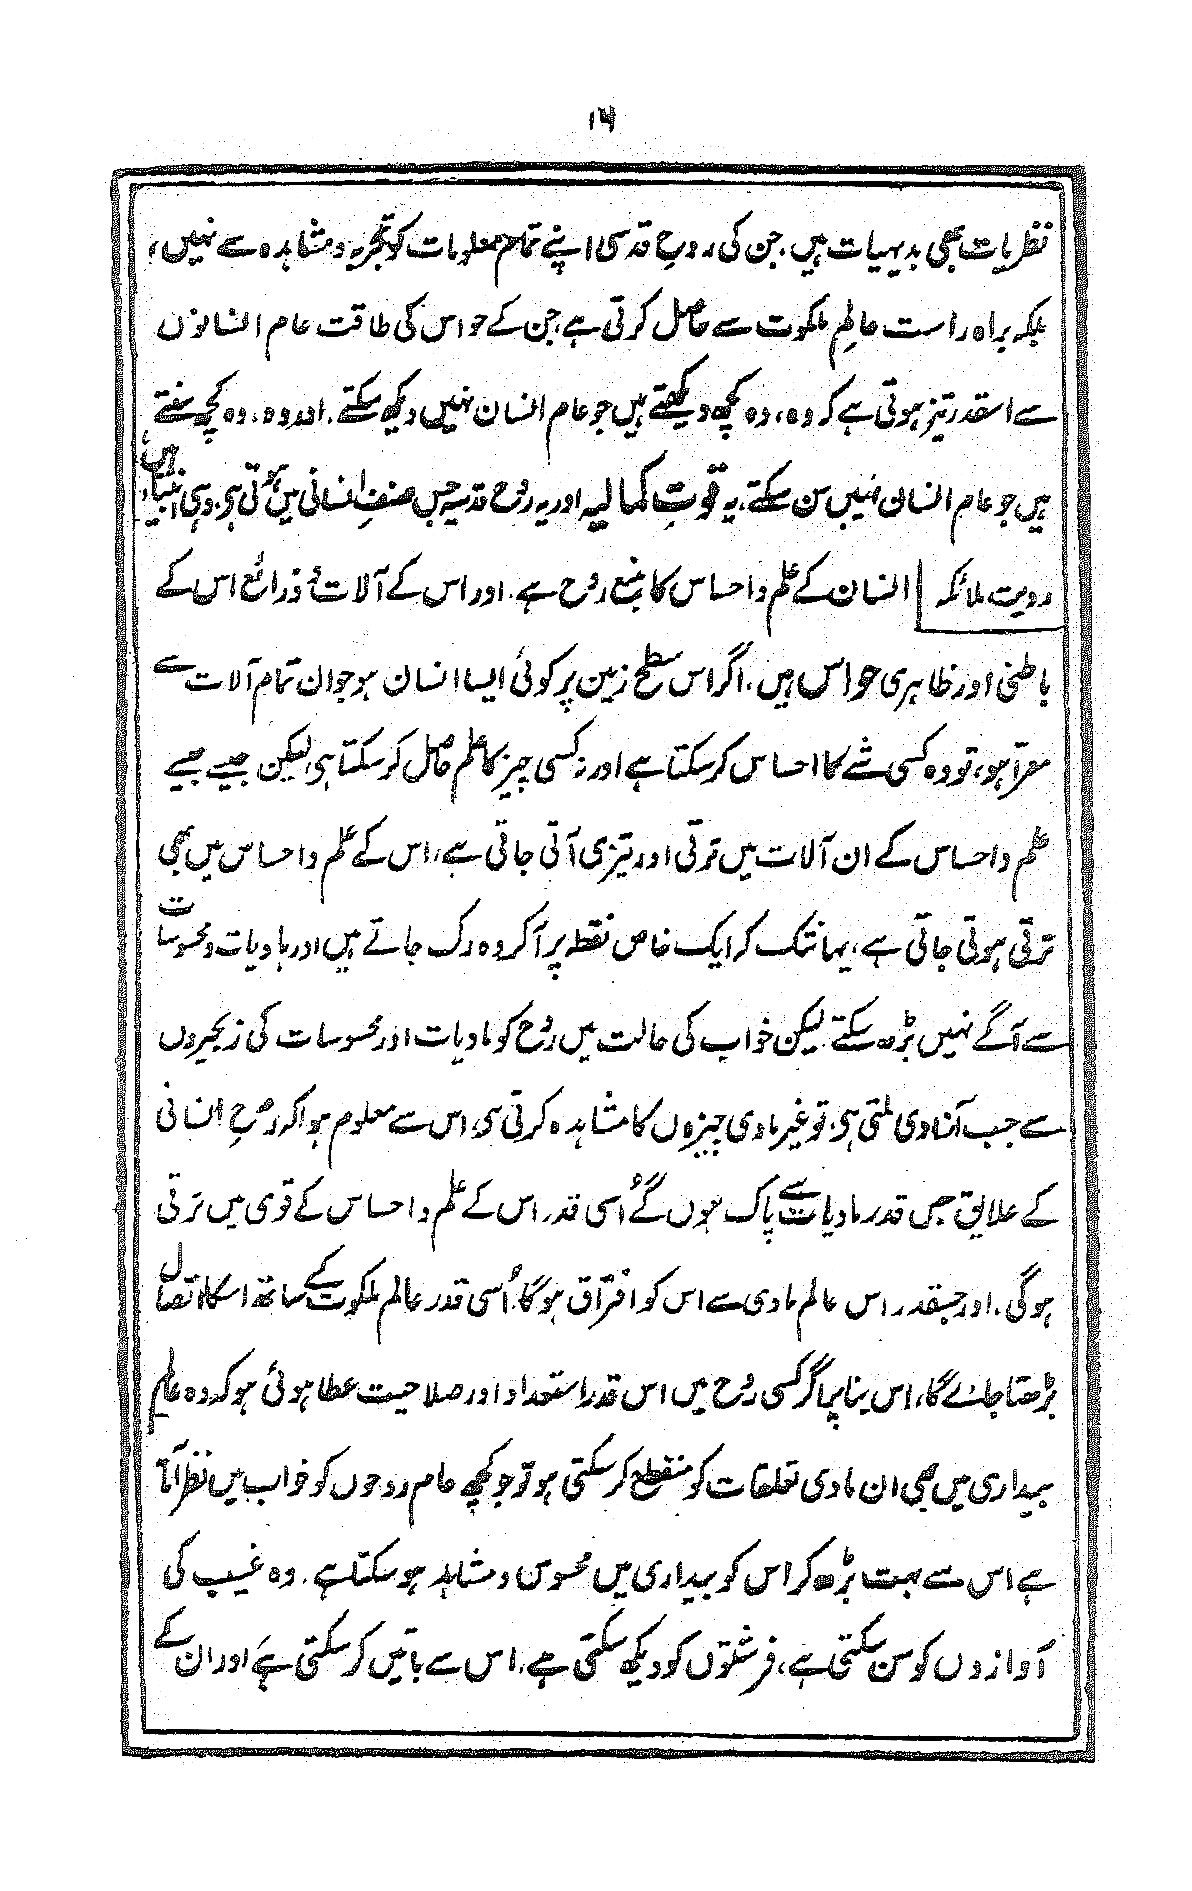 ۱۶
نظریات بھی بدیہیات ہیں، جن کی روحِ قدسی اپنے تمام معلومات کو تجربہ و مشاہدہ سے نہیں،
بلکہ براہ راست عالمِ ملکوت سے حاصل کرتی ہے، جن کے حواس کی طاقت عام انسانوں
سے اسقدر تیز ہوتی ہے کہ وہ، وہ کچھ دیکھتے ہیں جو عام انسان نہیں دیکھ سکتے. اور وہ، وہ کچھ سنتے
ہیں جو عام انسان نہیں سن سکتے، یہ قوتِ کمالیہ اور یہ روح قدسیہ جس صنفِ انسانی میں ہوتی ہی، وہی انبیاء ہیں،
رویت ملائکہ انسان کے علم و احساس کا منبع روح ہے. اور اس کے آلات و ذرائع اس کے
باطنی اور ظاہری حواس ہیں، اگر اس سطح زمین پر کوئی ایسا انسان ہو جو ان تمام آلات سے
معرّا ہو، تو وہ کسی شے کا احساس کر سکتا ہے اور نہ کسی چیز کا علم حاصل کر سکتا ہی لیکن جیسے جیسے
علم و احساس کے ان آلات میں ترقی اور تیزی آتی جاتی ہے، اس کے علم و احساس میں بھی
ترقی ہوتی جاتی ہے، یہانتک کہ ایک خاص نقطہ پر آ کر وہ رک جاتے ہیں اور مادیات و محسوسات
سے آگے نہیں بڑھ سکتے لیکن خواب کی حالت میں روح کو مادیات اور محسوسات کی زنجیروں
سے جب آزادی ملتی ہی، تو غیر مادی چیزوں کا مشاہدہ کرتی ہی، اس سے معلوم ہوا کہ روحِ انسانی
کے علایق جس قدر مادیات سے پاک ہوں گے، اُسی قدر اس کے علم و احساس کے قوی میں ترقی
ہوگی، اور جسقدر اس عالم مادی سے اس کو افتراق ہوگا، اُسی قدر عالم ملکوت کے ساتھ اسکا اتصال
بڑھتا جائے گا، اس بنا پر اگر کسی روح میں اس قدر استعداد اور صلاحیت عطا ہوئی ہو کہ وہ عالم
بیداری میں بھی ان مادی تعلقات کو منقطع کر سکتی ہو تو جو کچھ عام روحوں کو خواب میں نظر آتا
ہے اس سے بہت بڑھ کر اس کو بیداری میں محسوس و مشاہد ہو سکتا ہے. وہ غیب کی
آوازوں کو سن سکتی ہے، فرشتوں کو دیکھ سکتی ہے، اس سے باتیں کر سکتی ہے اور ان کے